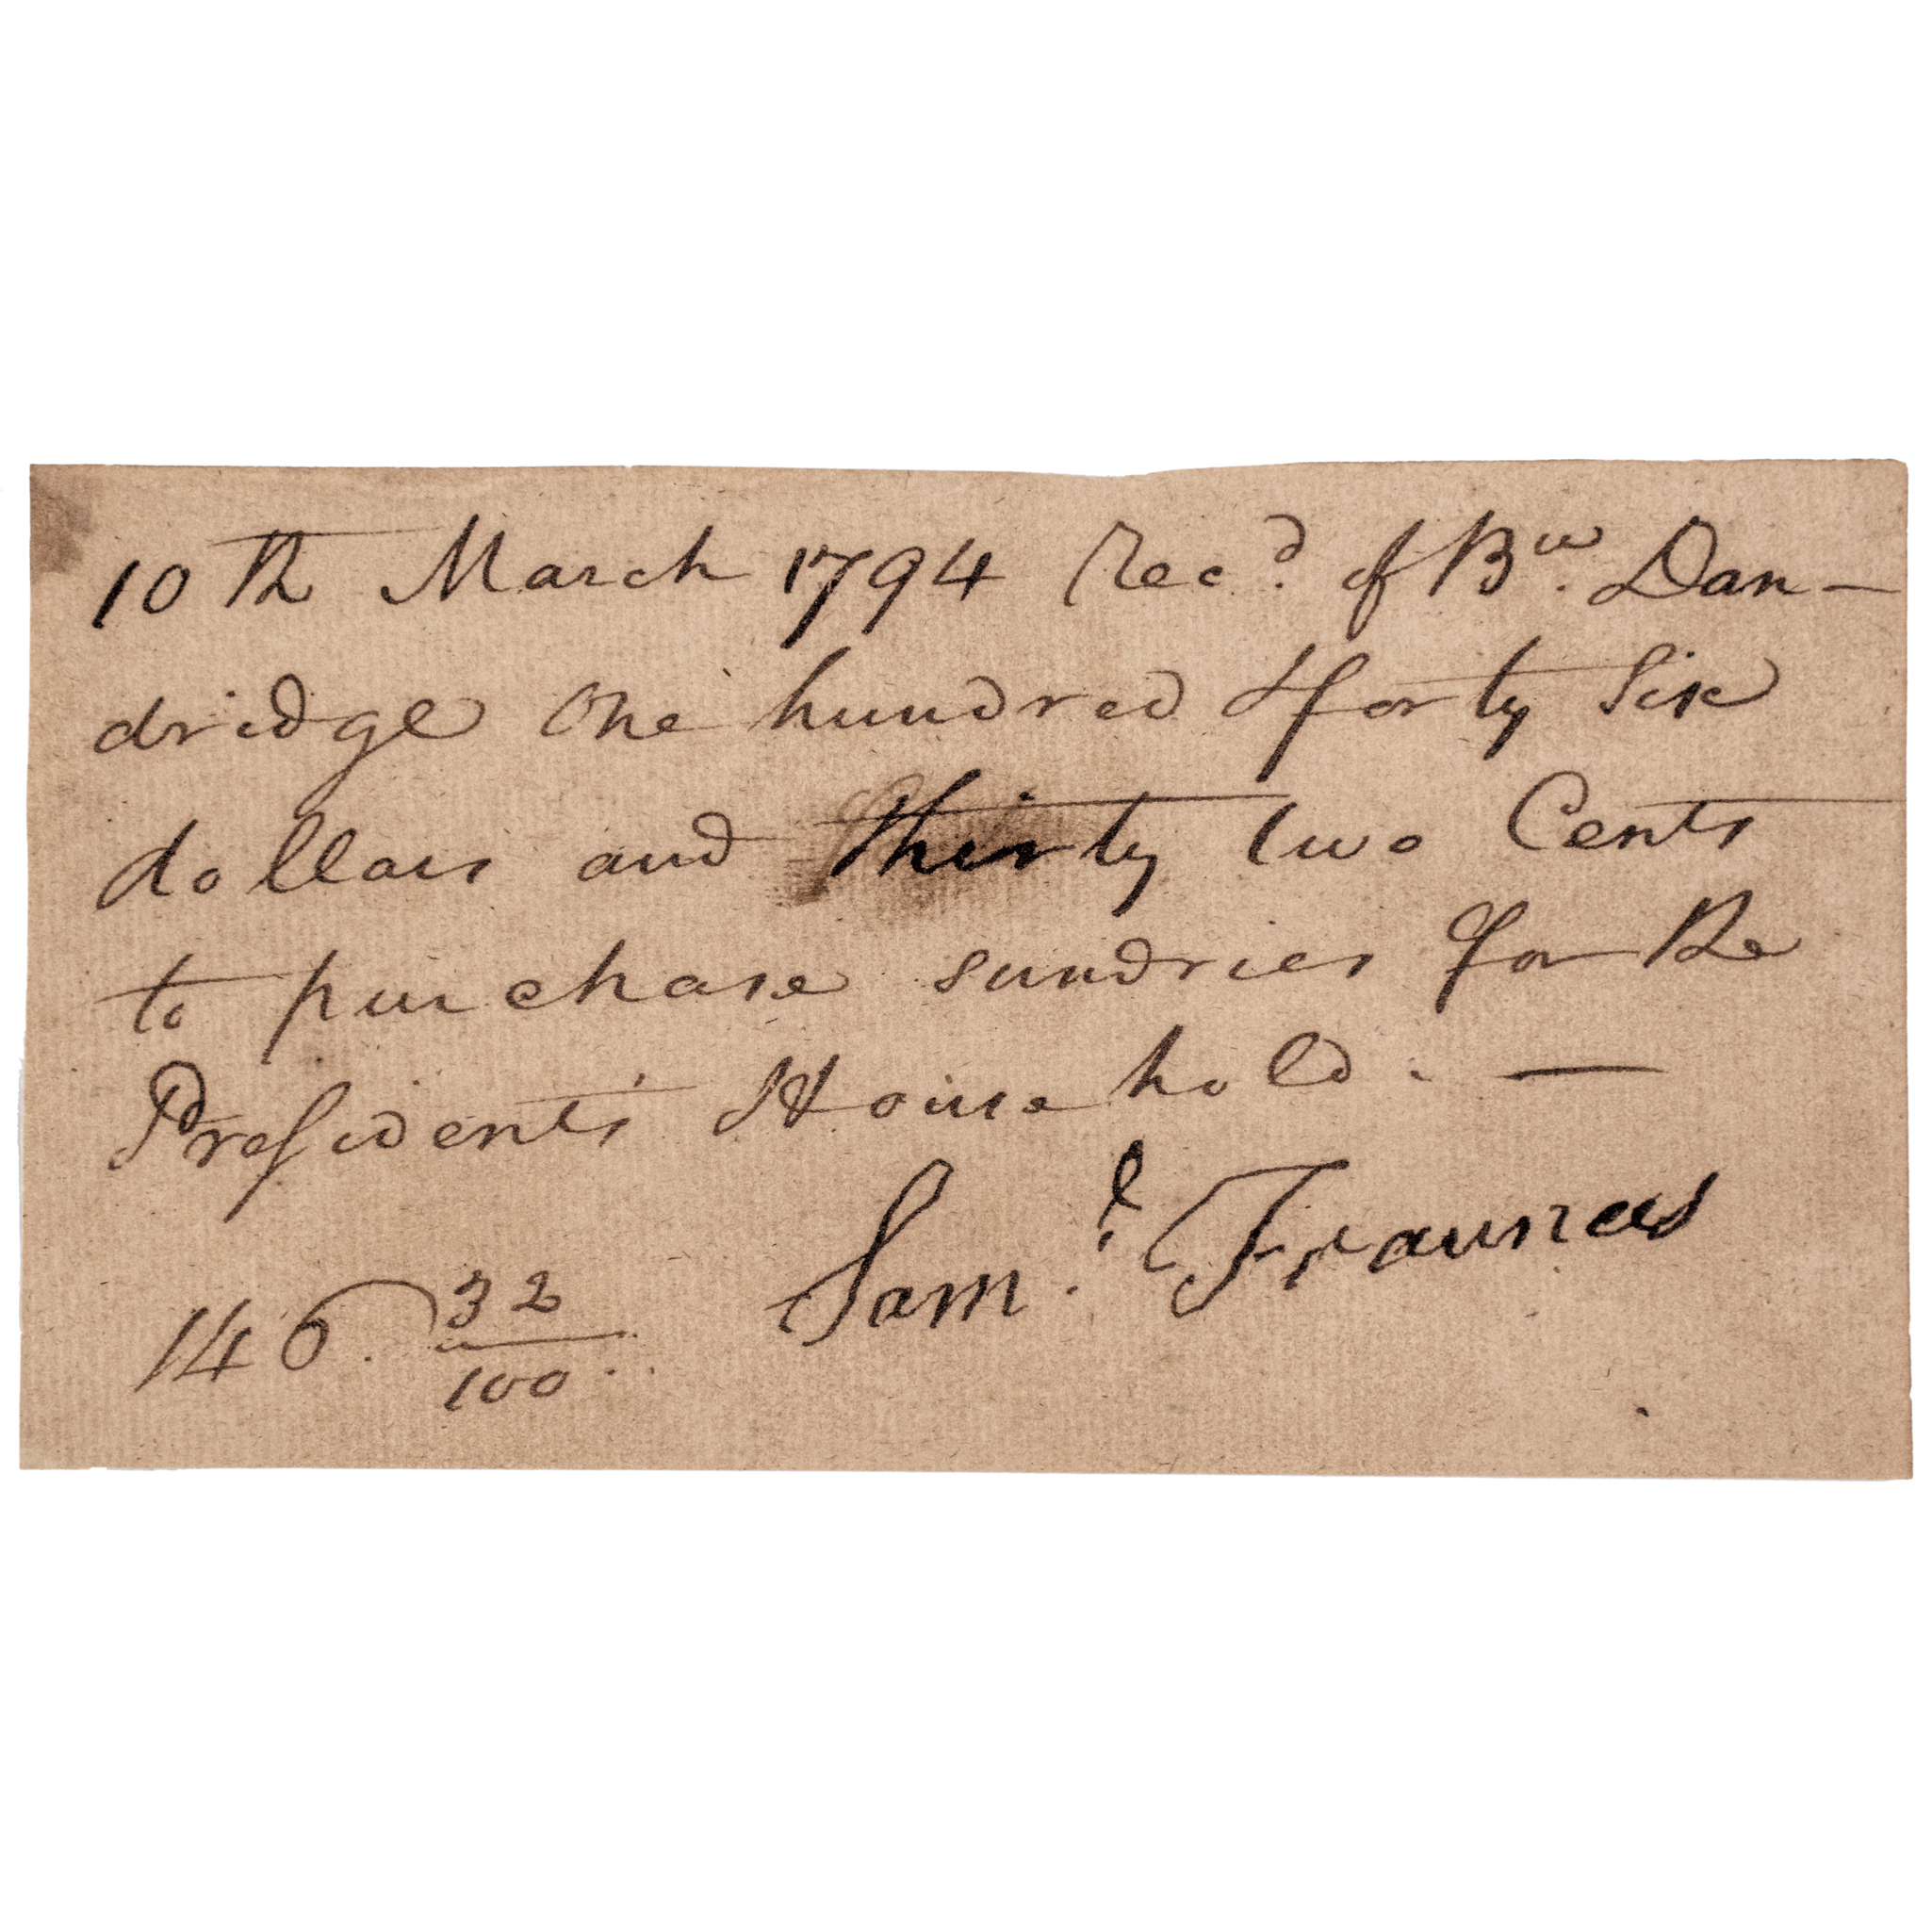 10th March 1794 Recd. of Bw. Dan-
dridge One hundred & forty Six
dollars and thirty two Cents
to purchase sundries for the
President's Household. —
146. 32/100. Saml. Fraunces